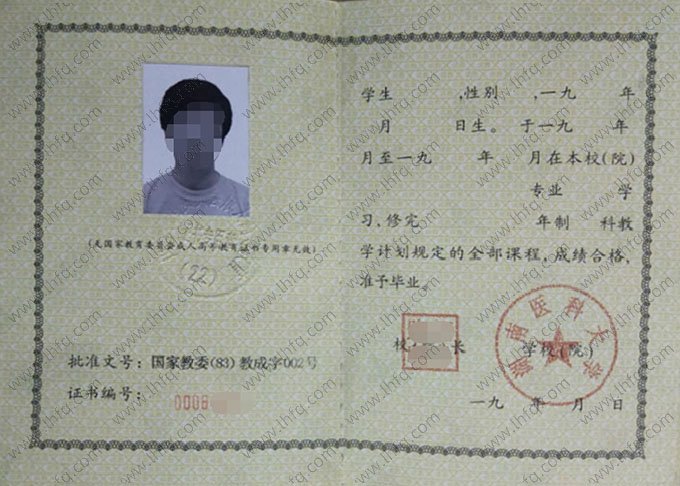 (无国家教育委员会成人高等教育证书专用章无效)
(22)
批准文号: 国家教委(83)教成字002号
证书编号: 0008
学生 ,性别 ,一九 年
月 日生。于一九 年
月至一九 年 月在本校(院)
专业 学
习,修完 年制 科教
学计划规定的全部课程,成绩合格,
准予毕业。
校 长 学校(院)
湖南医科大学
一九 年 月 日
www.lhfq.com